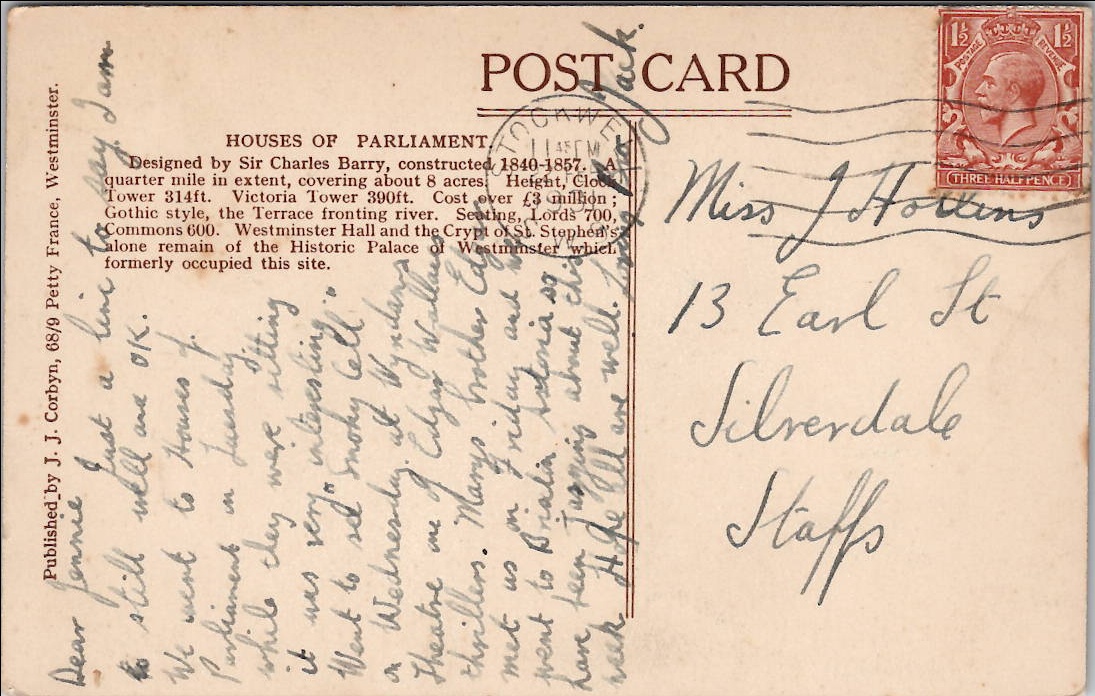 POST CARD
1½ 1½
POSTAGE REVENUE
THREE HALFPENCE
STOCKWE
11 45 PM
HOUSES OF PARLIAMENT.
Designed by Sir Charles Barry, constructed 1840-1857. A
quarter mile in extent, covering about 8 acres. Height, Clock
Tower 314ft. Victoria Tower 390ft. Cost over £3 million;
Gothic style, the Terrace fronting river. Seating, Lords 700,
Commons 600. Westminster Hall and the Crypt of St. Stephen's
alone remain of the Historic Palace of Westminster which
formerly occupied this site.
Published by J. J. Corbyn, 68/9 Petty France, Westminster.
Dear Jennie Just a line to say I am
still well and OK.
We went to Houses of
Parliament on Tuesday
while they were sitting
it was very interesting.
Went to see "Smoky Cell"
on Wednesday at Wyndams
Theatre one of Edgar Wallaces
thrillers. Marys brother Edgar
met us on Friday and we
went to Astoria so
have been Jazzing about this
week Hope all are well. Loving Bro Jack.
Miss J Hollins
13 Earl St
Silverdale
Staffs